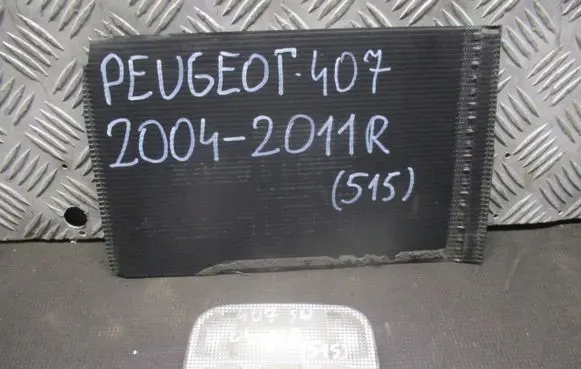 PEUGEOT·407
2004-2011R
(515)
407 SW
(515)